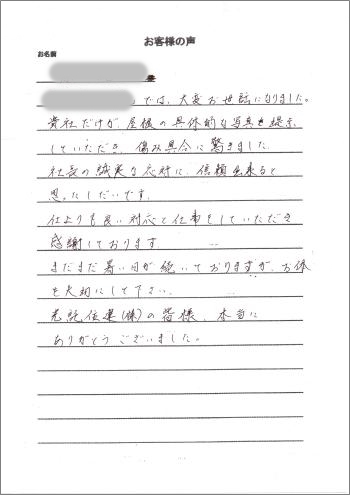 お客様の声
お名前
様
では、大変お世話になりました。
貴社だけが、屋根の具体的な写真を提示
していただき、傷み具合に驚きました。
社長の誠実な応対に、信頼出来ると
思ったしだいです。
何よりも良い対応と仕事をしていただき
感謝しております。
まだまだ暑い日が続いておりますが、お体
を大切にして下さい。
住建(株)の皆様、本当に
ありがとうございました。